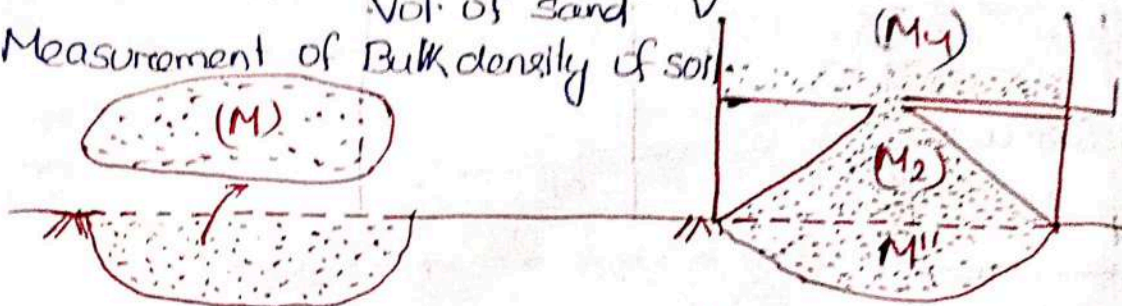 Vol. of sand V
Measurement of Bulk density of soil.
(M4)
(M)
(M2)
M"